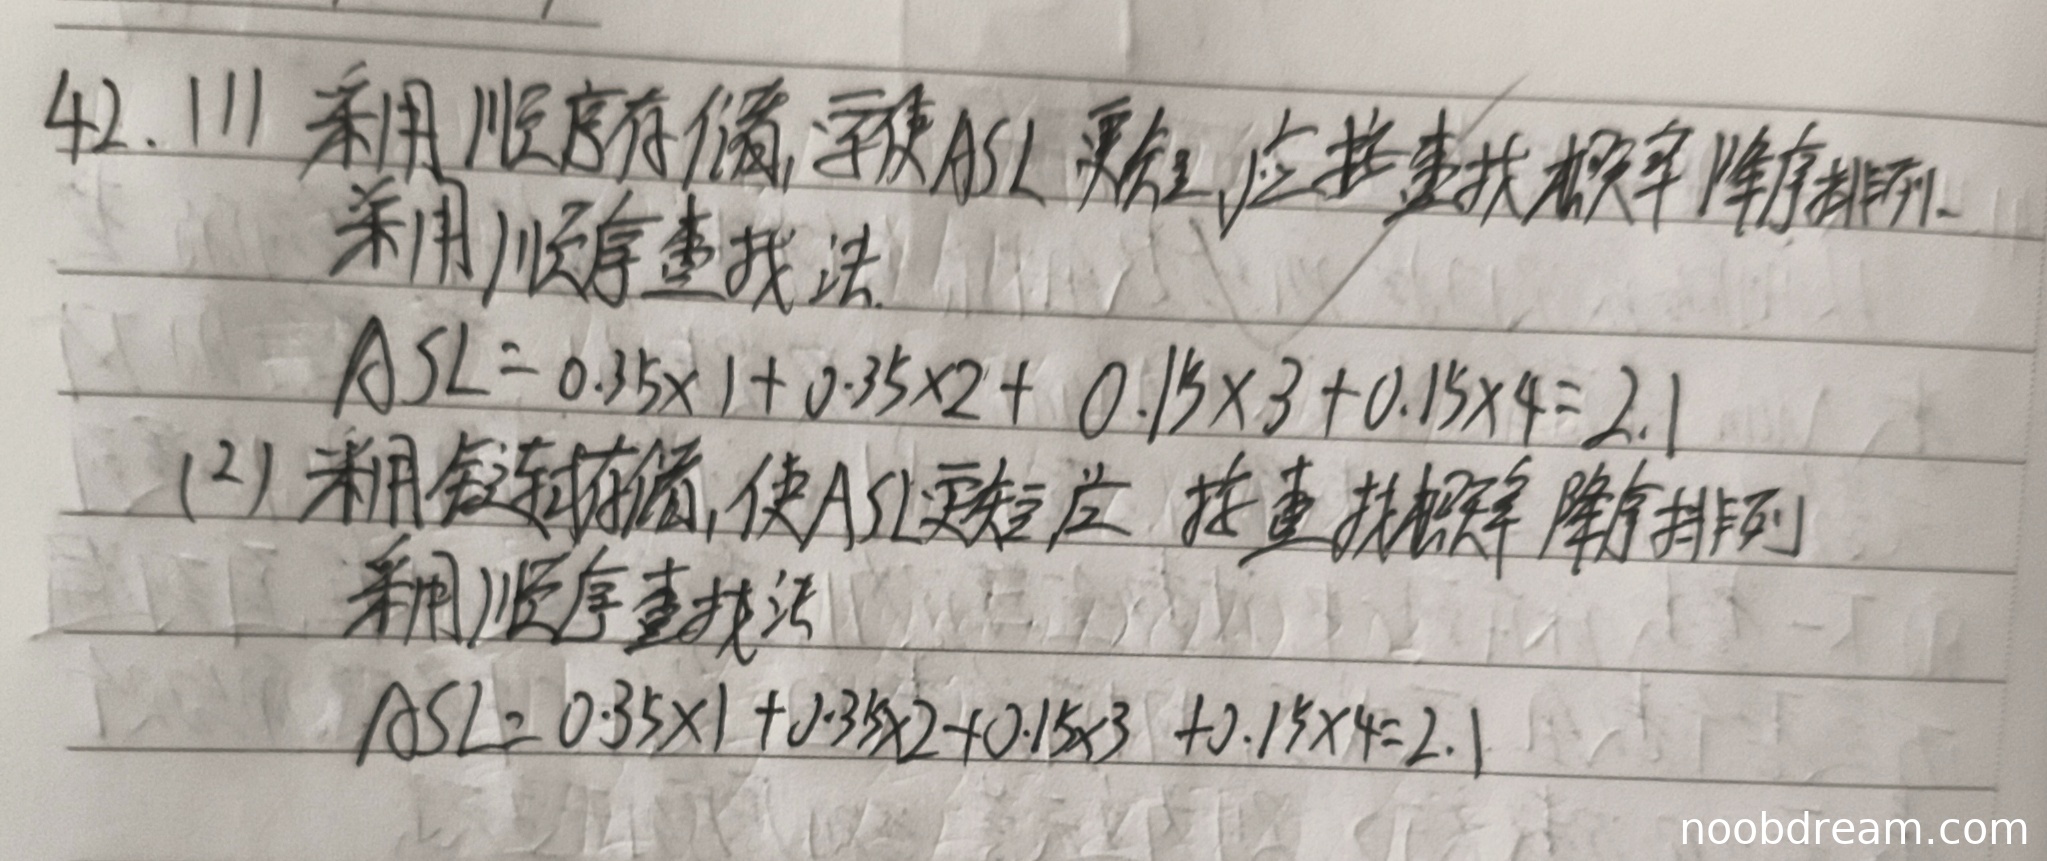 42.(1) 采用顺序存储,要使ASL更短,应按查找概率降序排列.
采用顺序查找法.
ASL=0.35×1+0.35×2+ 0.15×3+0.15×4=2.1
(2) 采用链式存储,使ASL更短应 按查找概率降序排列
采用顺序查找法
ASL=0.35×1+0.35×2+0.15×3 +0.15×4=2.1
noobdream.com